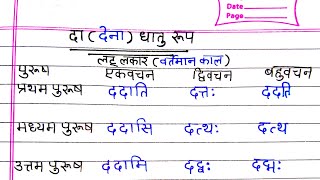 Date
Page
दा (देना) धातु रूप
लट् लकार (वर्तमान काल)
पुरूष एकवचन द्विवचन बहुवचन
प्रथम पुरूष ददाति दत्तः ददति
मध्यम पुरूष ददासि दत्थः दत्थ
उत्तम पुरूष ददामि दद्वः दद्मः